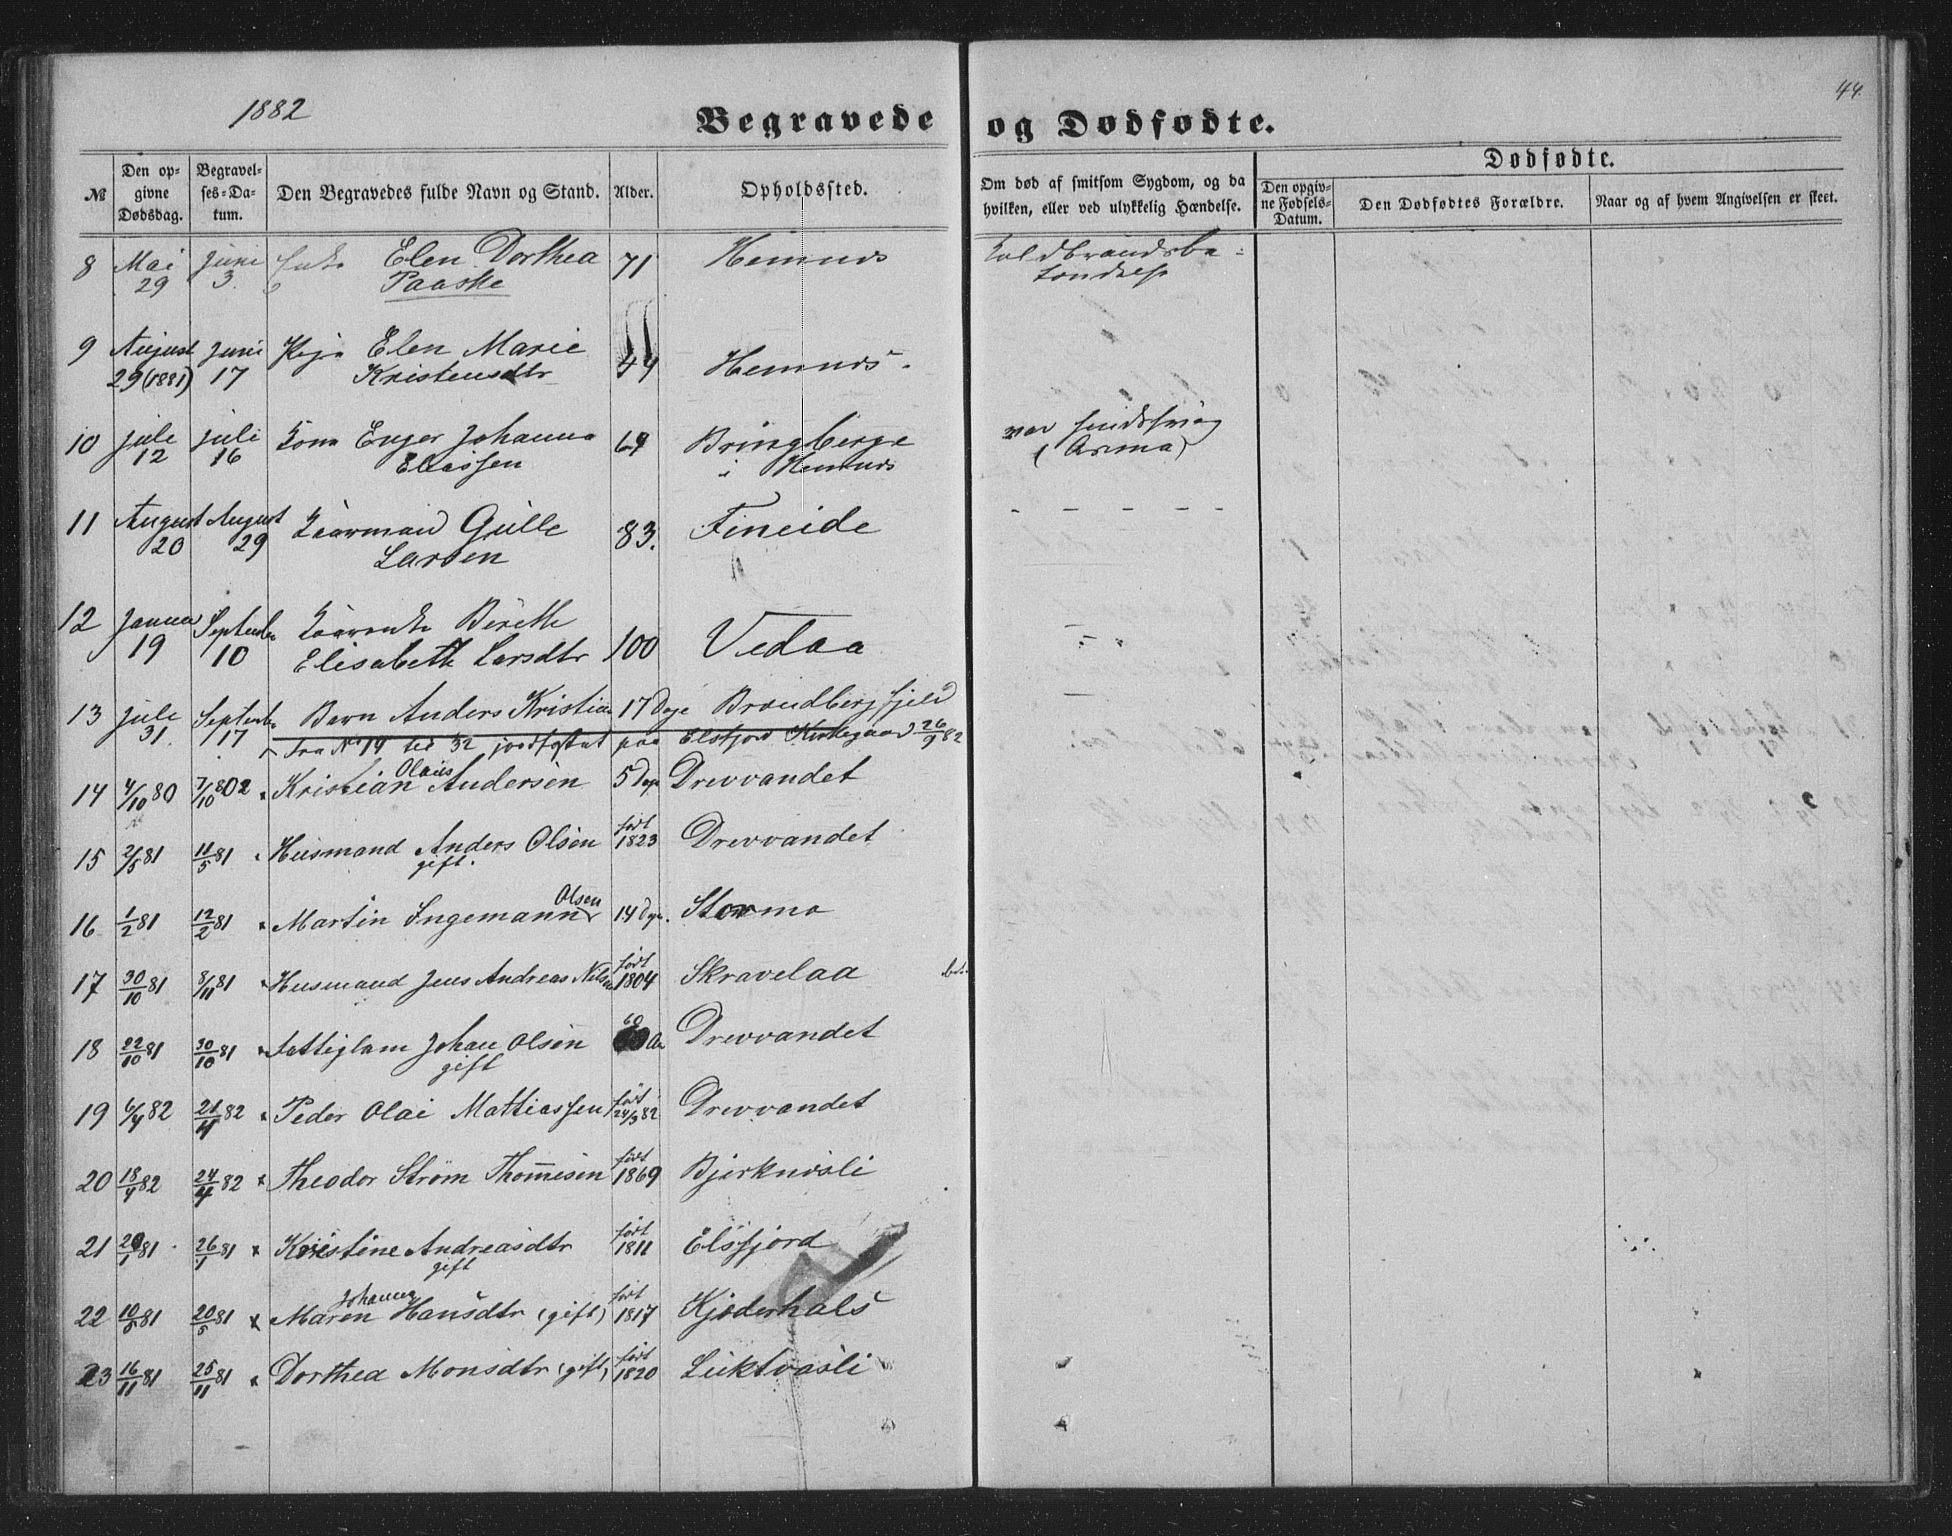 1882
44.
Begravede og Dødfødte.
№
Den opgivne Dødsdag.
Begravelses-Datum.
Den Begravedes fulde Navn og Stand.
Alder.
Opholdssted.
Om død af smitsom Sygdom, og da hvilken, eller ved ulykkelig Hændelse.
Dødfødte.
Den opgivne Fødsels-Datum.
Den Dødfødtes Forældre.
Naar og af hvem Angivelsen er skeet.
8 Mai 29 Juni 3. Enke Elen Dorthea Paaske 71 Hemnes Koldbrandsbetændelse
9 August 29 (1881) Juni 17 Pige Elen Marie Kristensdtr 44 Hemnes.
10 Juli 12 Juli 16 Kone Enger Johanna Eliassen Bringberge i Hemnes var sindssvag
11 August 20 August 29 Kaarmand Gulle Larsen 83. Fineide - - - - -
12 Januar 19 September 10 Kaarenke Berethe Elisabeth Larsdtr 100 Vedaa
13 Juli 31. September 17 Barn Anders Kristian 17 Dage Brændbergfjeld
Fra № 14 til 32 jordfæstet paa Elsfjord Kirkegaard 26/9 82
14 4/10 80 7/10 80 Kristian Olaus Andersen 5 Dage Drevvandet
15 2/5 81 11/5 81 Husmand Anders Olsen gift. født 1823 Drevvandet
16 1/2 81 12/2 81 × Martin Ingemann Olsen 14 Dge. Stormo
17 30/10 81 8/11 81 × Husmand Jens Andreas Nilsen født 1804 Skravelaa
18 22/10 81 30/10 81 × Fattiglem Johan Olsen gift 60 Aar Drevvandet
19 6/4 82 21/4 82 × Peder Olai Mattiassen født 24/3 82 Drevvandet
20 18/4 82 24/4 82 × Theodor Strøm Thommesen født 1869 Bjerknesli
21 20/1 81 26/1 81 × Kristine Andreasdtr gift født 1811 Elsfjord
22 10/5 81 20/5 81 × Maren Johanna Hansdtr (gift) født 1817 Kjøderhals
23 16/11 81 25/11 81 × Dorthea Monsdtr (gift) født 1820 Luktvasli